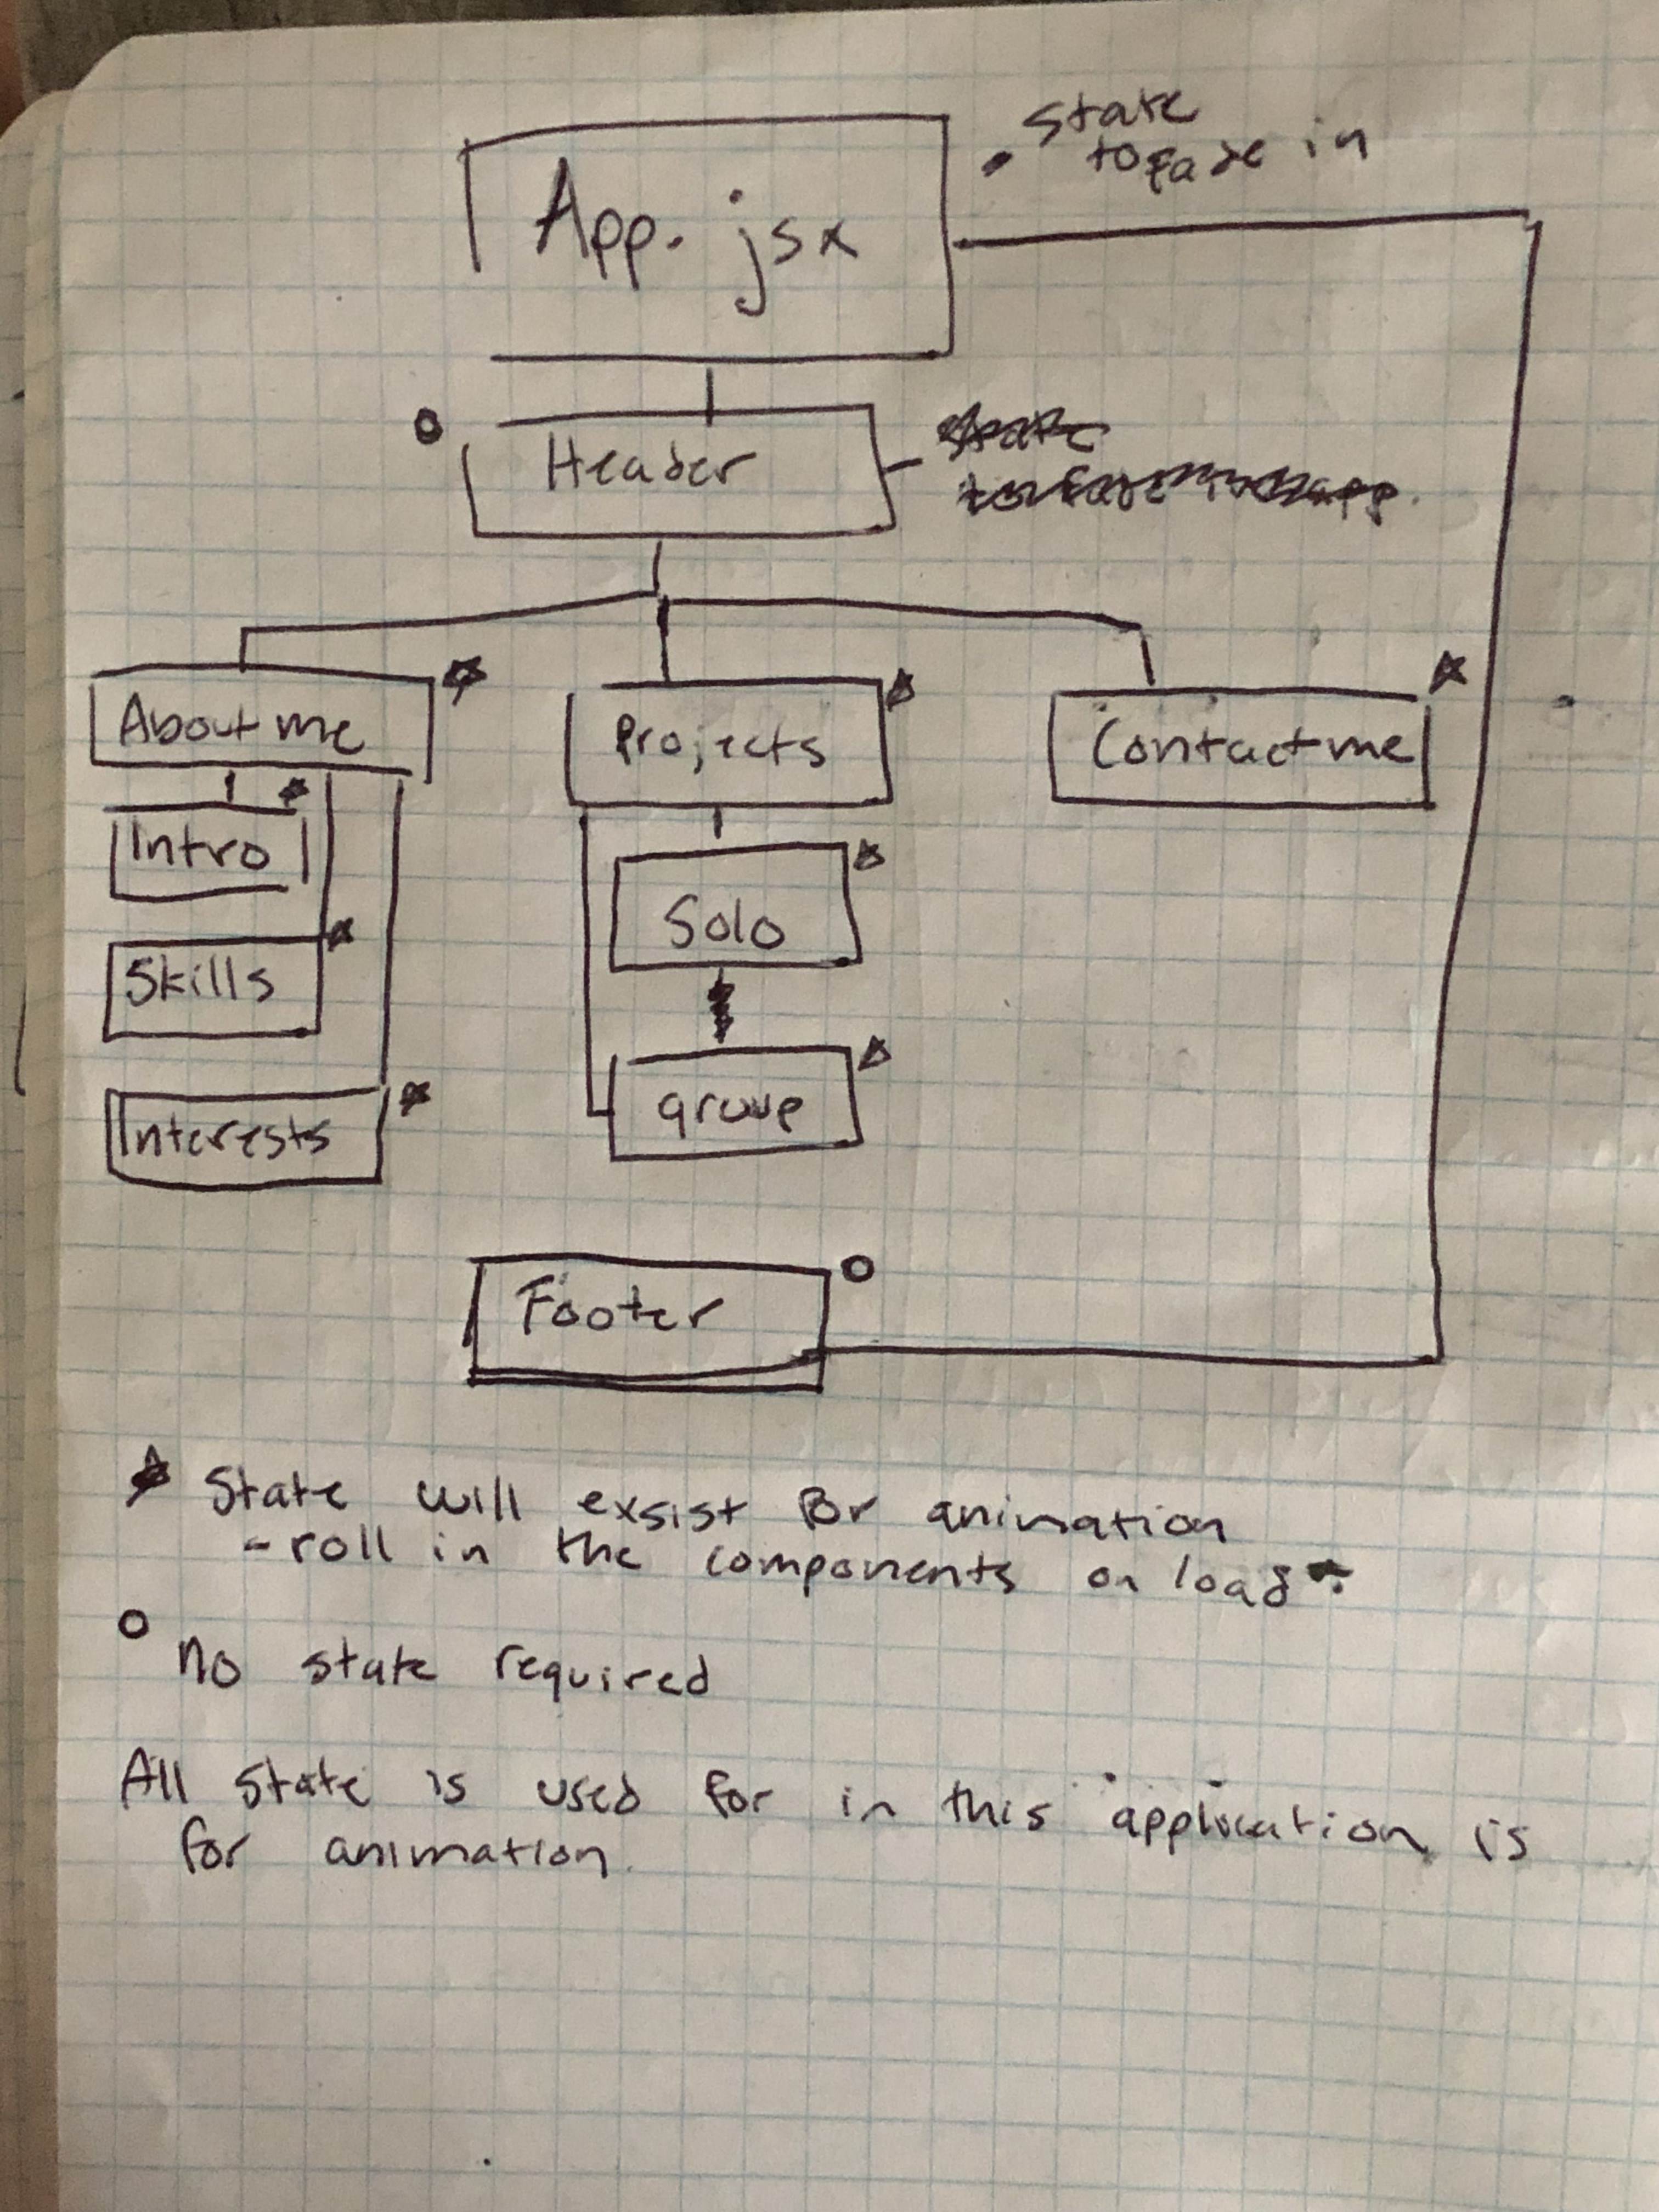 • state
to fade in
App.jsx
Header
About me
Projects
Contact me
Intro
Solo
Skills
group
Interests
Footer
☆ State will exsist for animation
- roll in the components on load
o no state required
All state is used for in this application is
for animation.